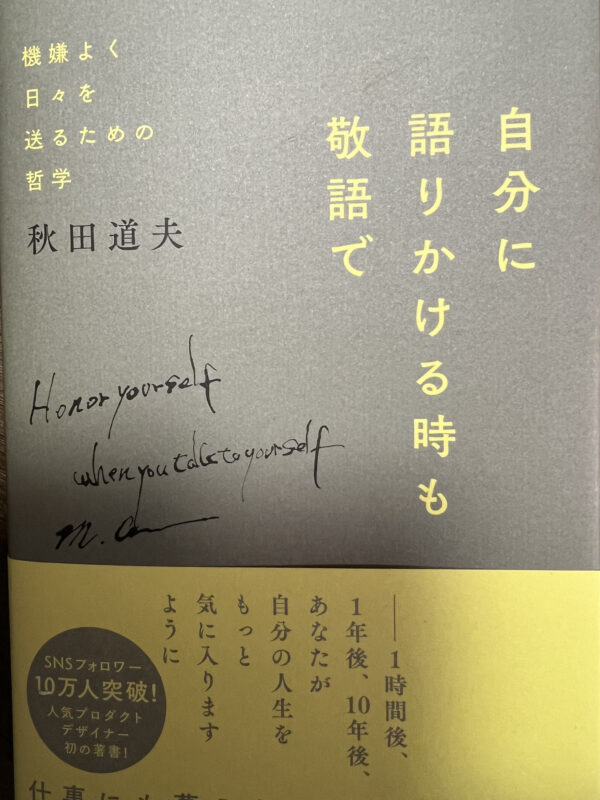 自分に
語りかける時も
敬語で
機嫌よく
日々を
送るための
哲学
秋田道夫
Honor yourself
when you talk to yourself
――1時間後、
1年後、10年後、
あなたが
自分の人生を
もっと
気に入ります
ように
SNSフォロワー
10万人突破!
人気プロダクト
デザイナー
初の著書!
仕事にも